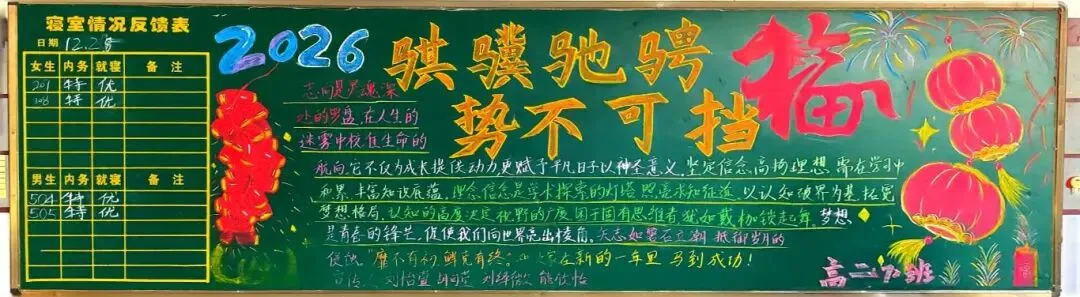 寝室情况反馈表
日期 12.25
女生 内务 就寝 备注
201 特 优
208 特 优
男生 内务 就寝 备注
504 特 优
505 特 优
2026
骐骥驰骋
势不可挡
福
志向是灵魂深
处的罗盘,在人生的
迷雾中校准生命的
航向,它不仅为成长提供动力更赋予平凡日子以神圣意义.坚定信念,高扬理想,需在学习中
积累.丰富知识底蕴,理念信念是学术探索的灯塔,照亮求知征途.以认知破界为基,拓宽
梦想格局.认知的高度决定视野的广度,困于固有思维者犹如戴枷锁起舞,梦想
是青春的锋芒,促使我们向世界亮出棱角.矢志如磐石立潮,抵御岁月的
侵蚀."靡不有初,鲜克有终."在新的一年里马到成功!
宣传: 刘怡萱
高二 班
福